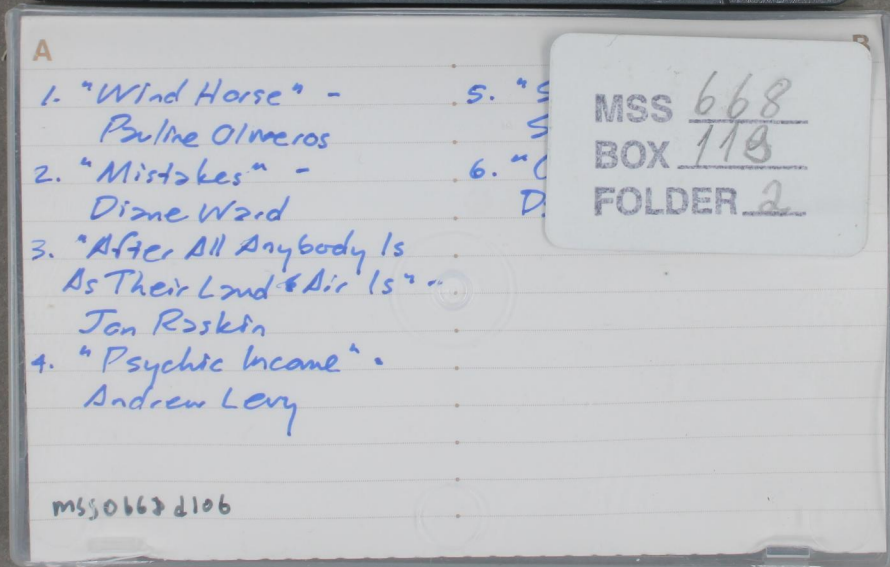 A
B
1. "Wind Horse" -
Pauline Olineros
2. "Mistakes" -
Diane Ward
3. "After All Anybody Is
As Their Land & Air Is" -
Jon Raskin
4. "Psychic Income" -
Andrew Levy
5. "S
S
6. "
D
MSS 668
BOX 119
FOLDER 2
mss0668d106